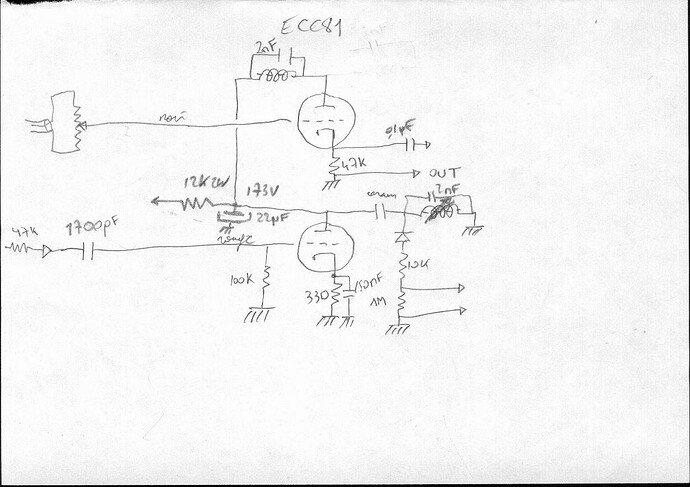 ECC81
2nF
0,1µF
47K
OUT
12K 2W
173V
2nF
22µF
47K
1700pF
100K
330
150nF
10K
1M